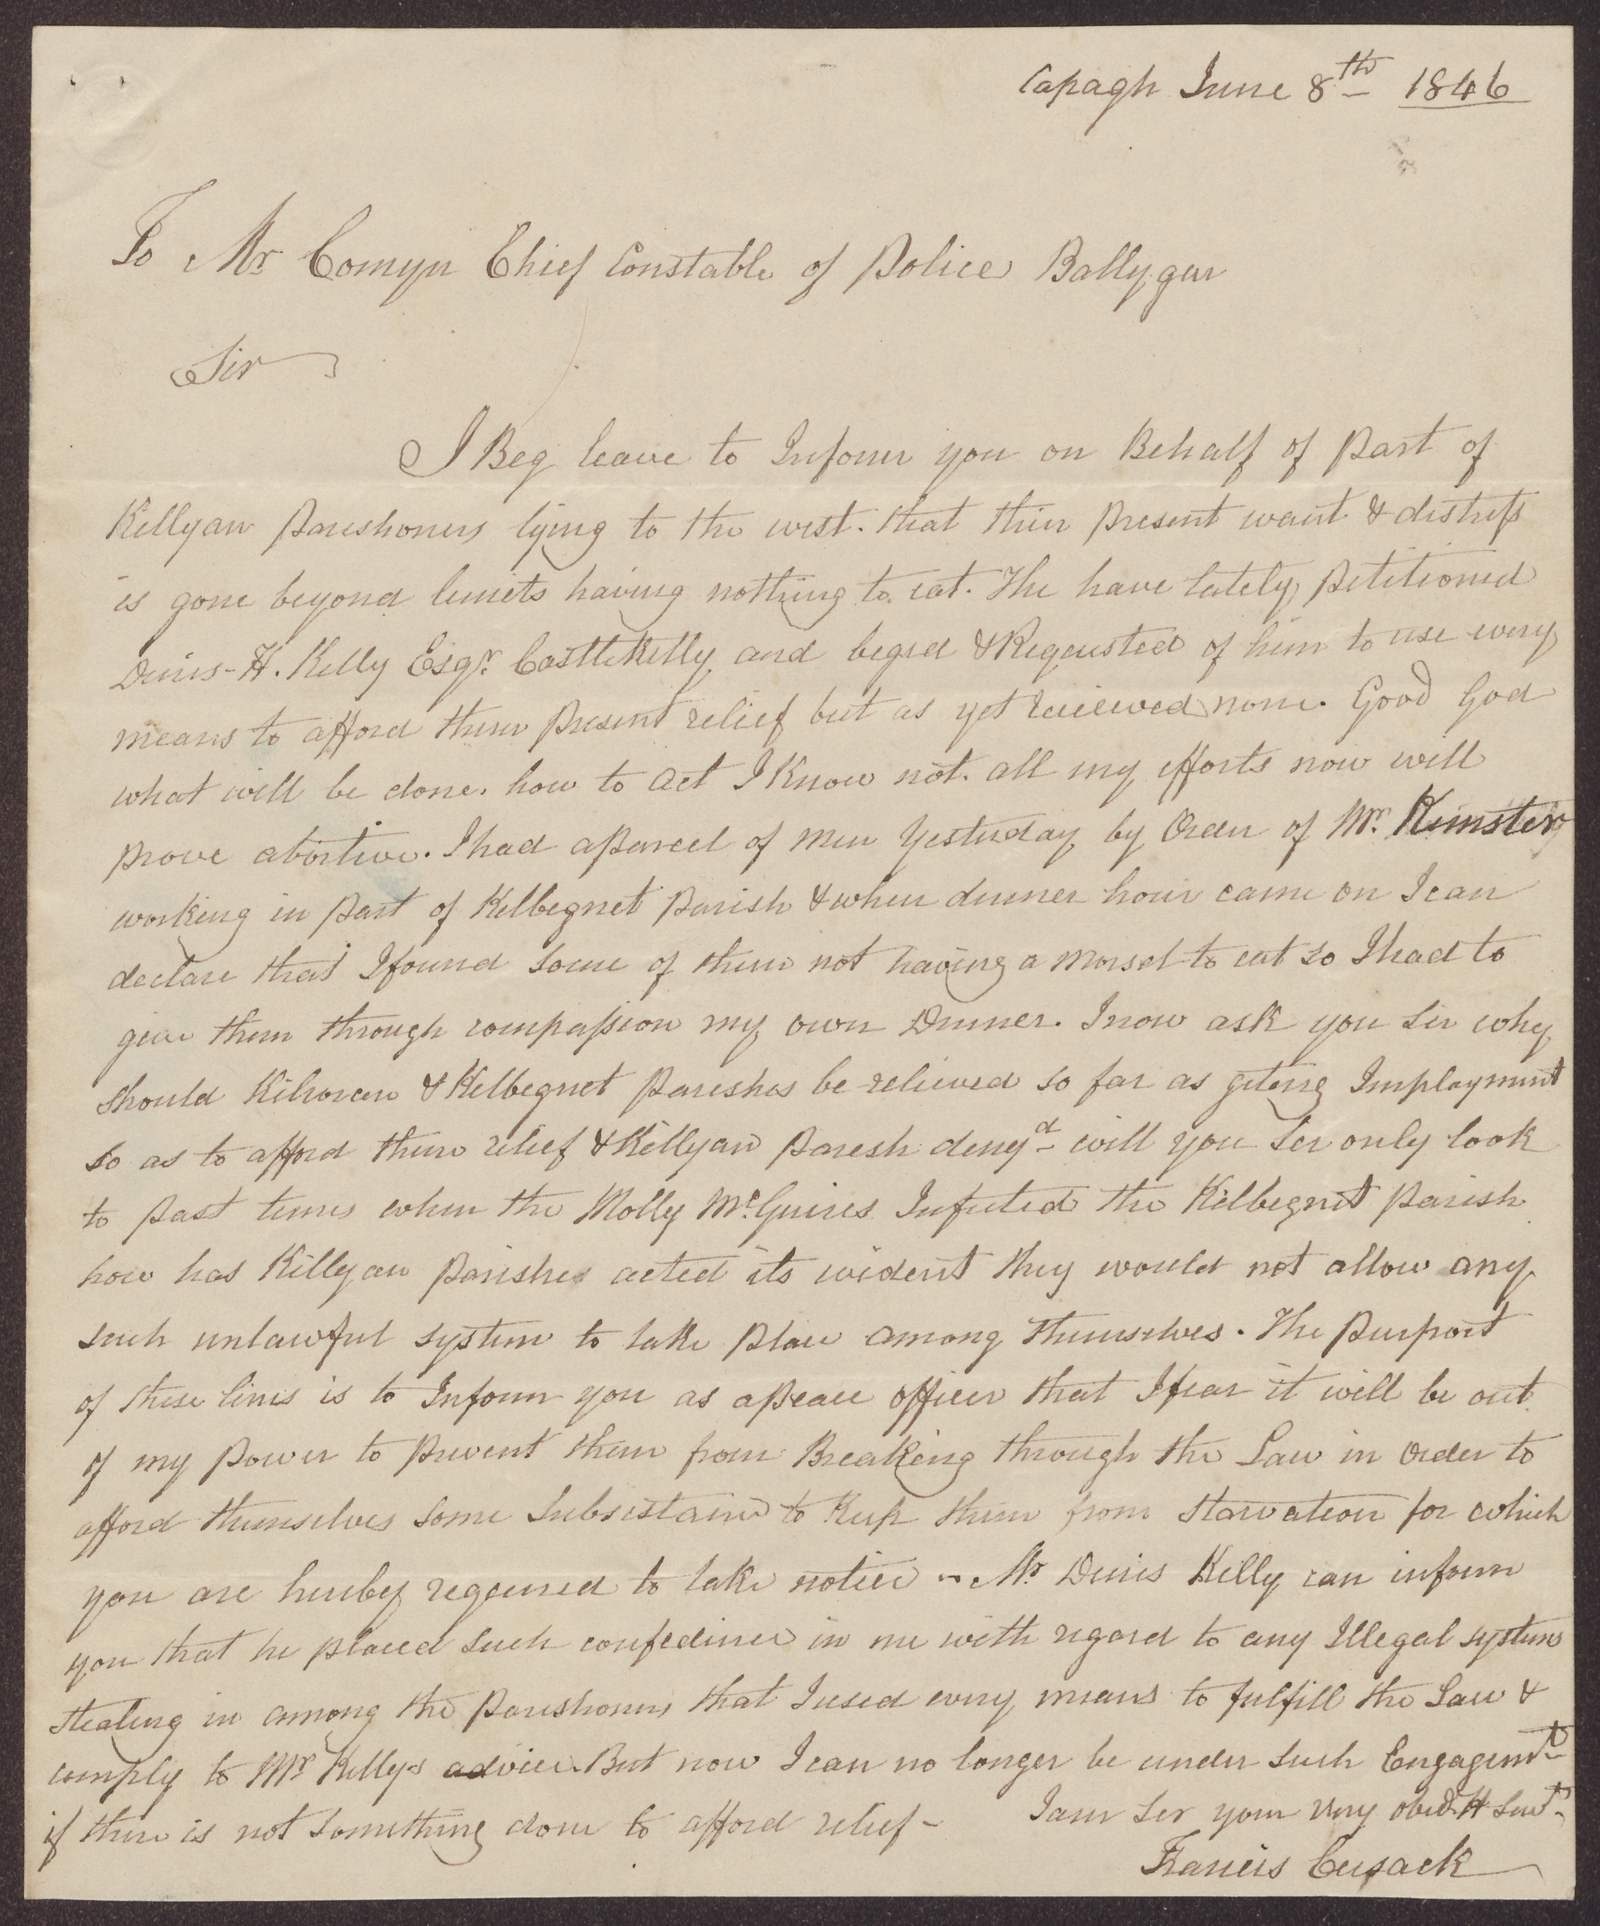 Capagh June 8th 1846
To Mr Comyn Chief Constable of Police Ballygar
Sir
I Beg leave to Inform you on Behalf of Part of
Killyan Parishoners lying to the west. that their Present want & distress
is gone beyond limits having nothing to eat. The have lately Petitioned
Denis H. Kelly Esqr. CastleKelly and beged & Requested of him to use every
means to afford them Present relief but as yet recieved none. Good God
what will be done. how to act I Know not. all my efforts now will
prove abortive. I had a Parcel of men Yesterday by Order of Mr.
working in Part of Kilbegnet Parish & when dinner hour came on I can
declare that I found Some of them not having a morsel to eat so I had to
give them through compassion my own Dinner. I now ask you Sir why
should Kilroran & Kilbegnet Parishes be relieved so far as giting Imployment
so as to afford them relief & Killyan Parish denyd will you Sir only look
to Past times when the Molly McGuires Infested the Kilbegnet Parish
how has Killyan Parishes acted its evident they would not allow any
such unlawful system to take Place among themselves. The Purport
of these lines is to Inform you as a Peace officer that I fear it will be out
of my Power to Prevent them from Breaking through the Law in Order to
afford themselves some Subsistance to Keep them from Starvation for which
you are hereby required to take notice - Mr Denis Kelly can inform
you that he placed such confidince in me with regard to any Illegal system
stealing in among the Parishoners that I used every means to fulfill the Law &
comply to Mr Kelly's advice. But now I can no longer be under such Engagemt
if there is not something done to afford relief - I am Sir your very obedt H Servt.
Francis Cusack